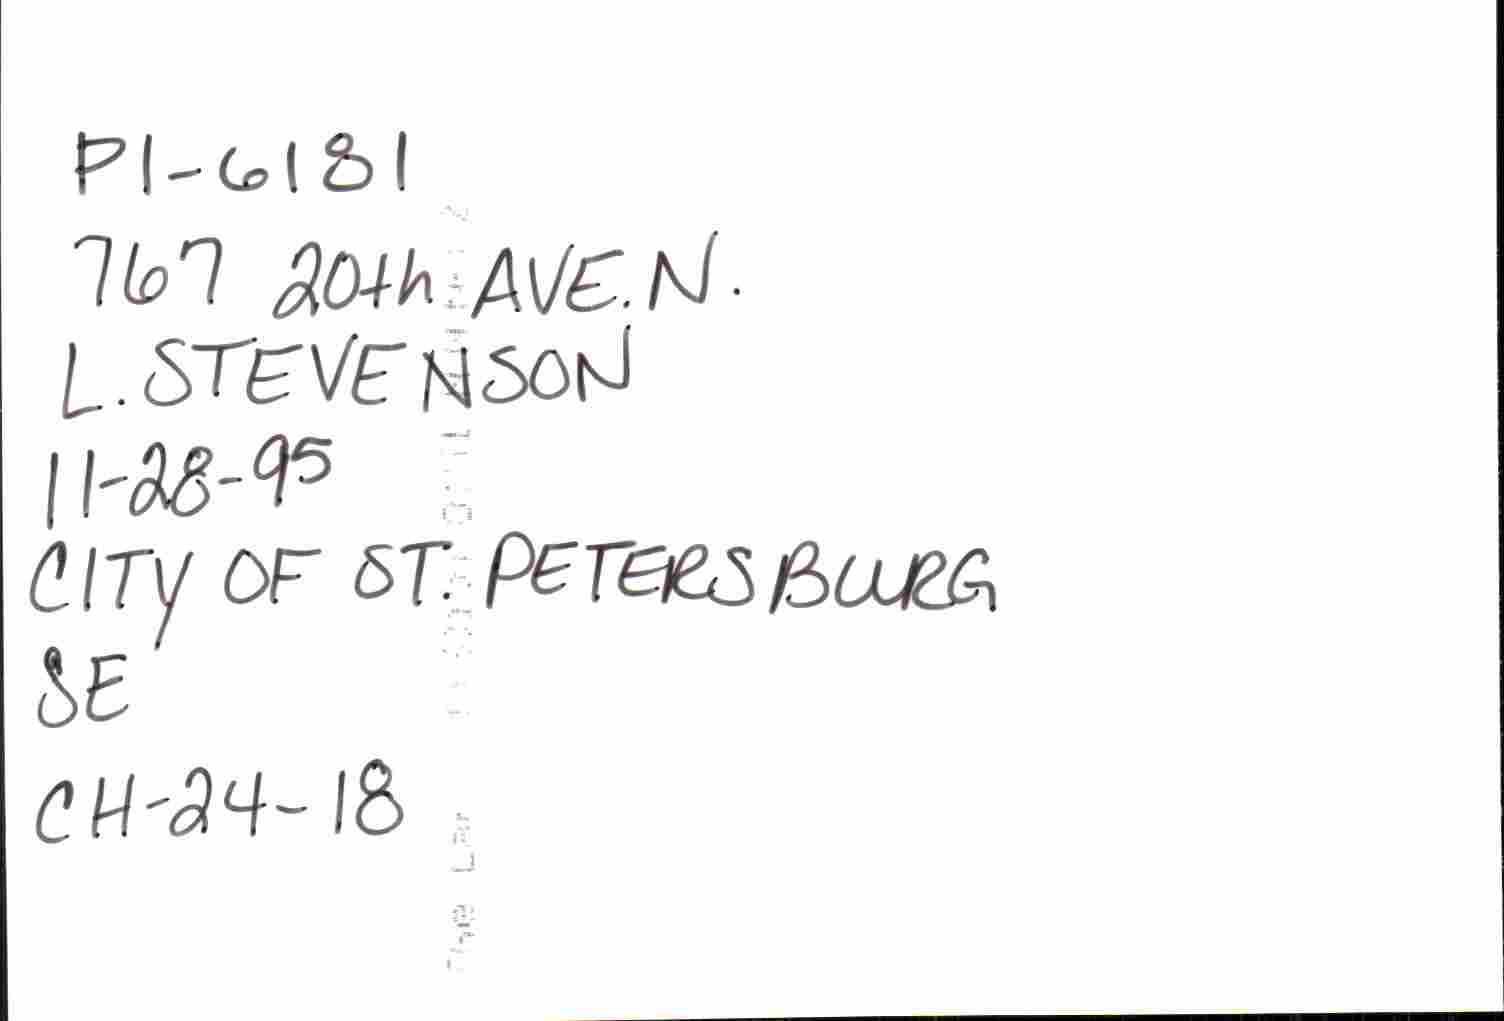 PI-6181
767 20th AVE. N.
L. STEVENSON
11-28-95
CITY OF ST. PETERSBURG
SE
CH-24-18